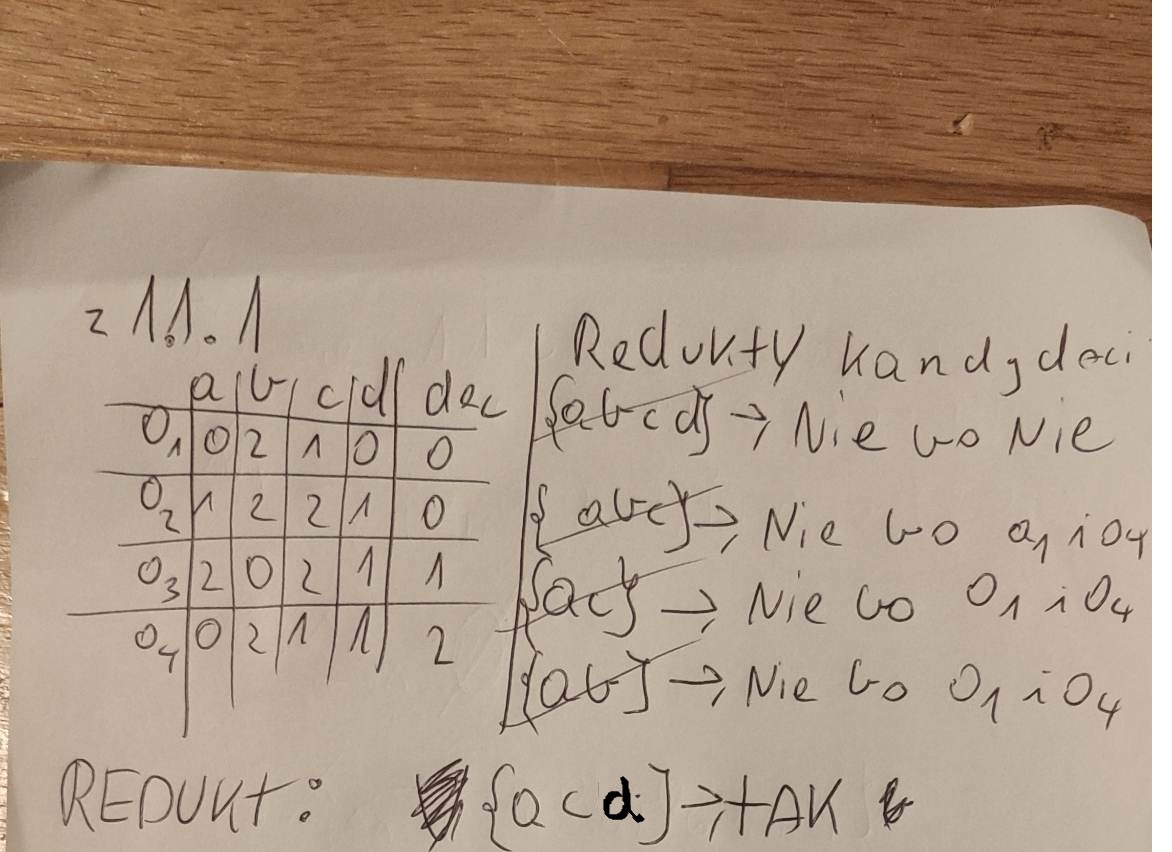 z 11.1
a b c d dec
O1 0 2 1 0 0
O2 1 2 2 1 0
O3 2 0 2 1 1
O4 0 2 1 1 2
Redukty kandydaci
{abcd} → Nie bo Nie
{abc} → Nie bo O1 i O4
{ac} → Nie bo O1 i O4
{ab} → Nie bo O1 i O4
REDUKT: {acd} → TAK